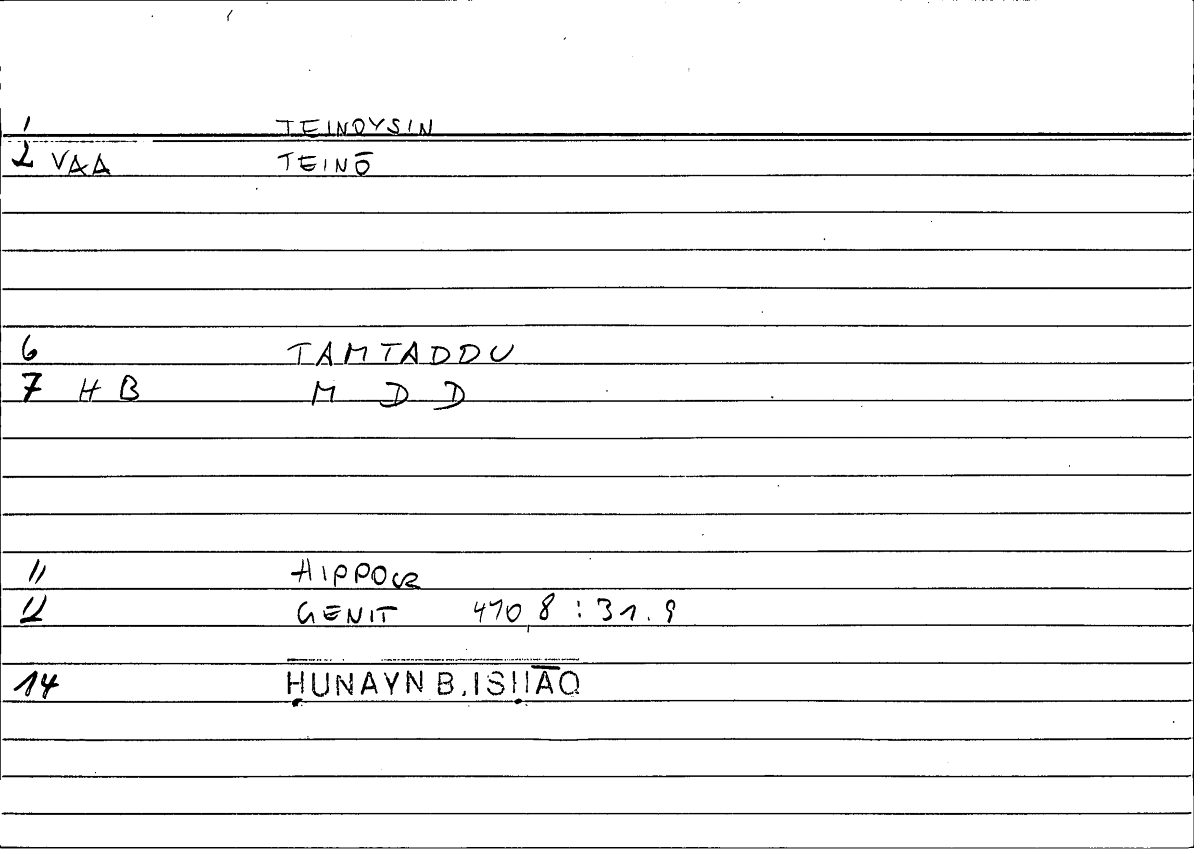 1 TEINOYSIN
2 VAA TEINŌ
6 TAMTADDU
7 H B M D D
11 HIPPOCR
12 GENIT 470,8 : 31.9
14 ḤUNAYN B. ISḤĀQ